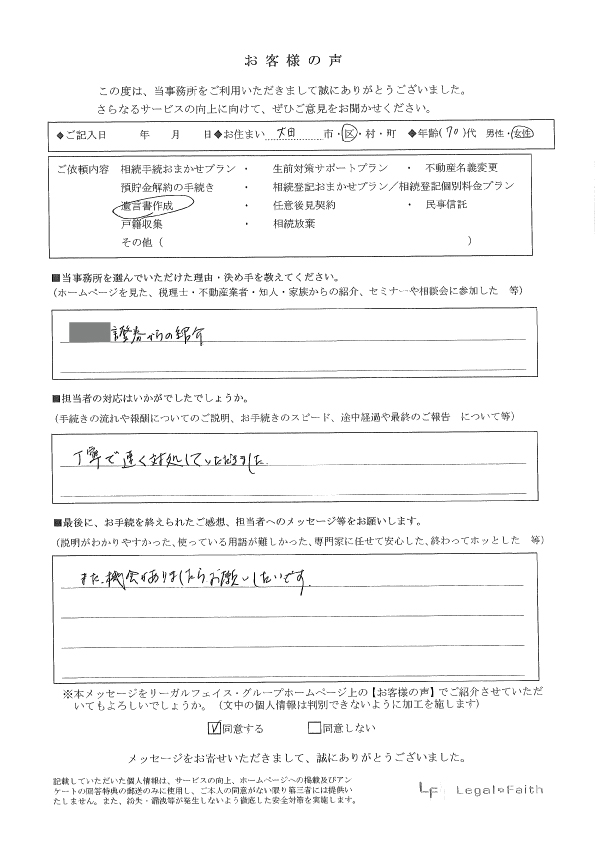 お客様の声
この度は、当事務所をご利用いただきまして誠にありがとうございました。
さらなるサービスの向上に向けて、ぜひご意見をお聞かせください。
◆ご記入日　年　月　日◆お住まい 大田 市・区・村・町 ◆年齢(70)代 男性・女性
ご依頼内容 相続手続おまかせプラン ・ 生前対策サポートプラン ・ 不動産名義変更
預貯金解約の手続き ・ 相続登記おまかせプラン／相続登記個別料金プラン
遺言書作成 ・ 任意後見契約 ・ 民事信託
戸籍収集 ・ 相続放棄
その他（　　　）
■当事務所を選んでいただけた理由・決め手を教えてください。
（ホームページを見た、税理士・不動産業者・知人・家族からの紹介、セミナーや相談会に参加した　等）
証券からの紹介
■担当者の対応はいかがでしたでしょうか。
（手続きの流れや報酬についてのご説明、お手続きのスピード、途中経過や最終のご報告　について等）
丁寧で速く対処していただきました。
■最後に、お手続を終えられたご感想、担当者へのメッセージ等をお願いします。
（説明がわかりやすかった、使っている用語が難しかった、専門家に任せて安心した、終わってホッとした　等）
また、機会がありましたらお願いしたいです。
※本メッセージをリーガルフェイス・グループホームページ上の【お客様の声】でご紹介させていただ
いてもよろしいでしょうか。（文中の個人情報は判別できないように加工を施します）
☑同意する　□同意しない
メッセージをお寄せいただきまして、誠にありがとうございました。
記載していただいた個人情報は、サービスの向上、ホームページへの掲載及びアン
ケートの回答特典の郵送のみに使用し、ご本人の同意がない限り第三者には提供い
たしません。また、紛失・漏洩等が発生しないよう徹底した安全対策を実施します。
LF Legal Faith